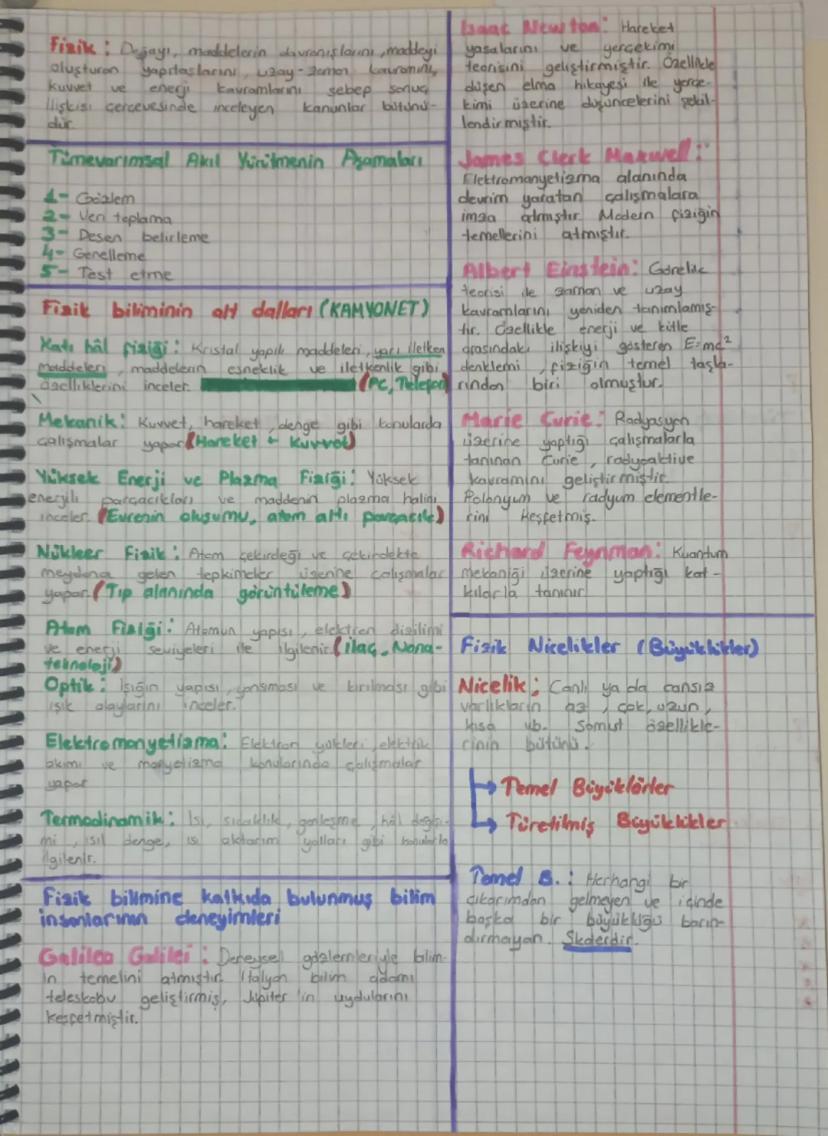 Fizik : Doğayı, maddelerin davranışlarını, maddeyi
oluşturan yapıtaşlarını, uzay-zaman kavramını,
kuvvet ve enerji kavramlarını sebep sonuç
ilişkisi çerçevesinde inceleyen kanunlar bütünü-
dür.
Tümevarımsal Akıl Yürütmenin Aşamaları
1- Gözlem
2- Veri toplama
3- Desen belirleme
4- Genelleme
5- Test etme
Fizik biliminin alt dalları (KAMYONET)
Katı hâl fiziği : Kristal yapılı maddeleri, yarı iletken
maddeleri, maddelerin esneklik ve iletkenlik gibi
özelliklerini inceler. (PC, Telefon)
Mekanik : Kuvvet, hareket, denge gibi konularda
çalışmalar yapar (Hareket + Kuvvet)
Yüksek Enerji ve Plazma Fiziği : Yüksek
enerjili parçacıkları ve maddenin plazma halini
inceler. (Evrenin oluşumu, atom altı parçacık)
Nükleer Fizik : Atom çekirdeği ve çekirdekte
meydana gelen tepkimeler üzerine çalışmalar
yapar. (Tıp alanında görüntüleme)
Atom Fiziği : Atomun yapısı, elektron dizilimi
ve enerji seviyeleri ile ilgilenir (ilaç, Nano-
teknoloji)
Optik : Işığın yapısı, yansıması ve kırılması gibi
ışık olaylarını inceler.
Elektromanyetizma : Elektron yükleri, elektrik
akımı ve manyetizma konularında çalışmalar
yapar
Termodinamik : Isı, sıcaklık, genleşme, hâl değişi-
mi, ısıl denge, ısı aktarım yolları gibi konularla
ilgilenir.
Fizik bilimine katkıda bulunmuş bilim
insanlarının deneyimleri
Galileo Galilei : Deneysel gözlemleriyle bilim-
in temelini atmıştır. İtalyan bilim adamı
teleskobu geliştirmiş, Jüpiter'in uydularını
keşfetmiştir.
Isaac Newton : Hareket
yasalarını ve yerçekimi
teorisini geliştirmiştir. Özellikle
düşen elma hikayesi ile yerçe-
kimi üzerine düşüncelerini şekil-
lendirmiştir.
James Clerk Maxwell :
Elektromanyetizma alanında
devrim yaratan çalışmalara
imza atmıştır. Modern fiziğin
temellerini atmıştır.
Albert Einstein : Görelilik
teorisi ile zaman ve uzay
kavramlarını yeniden tanımlamış-
tır. Özellikle enerji ve kütle
arasındaki ilişkiyi gösteren E=mc²
denklemi, fiziğin temel taşla-
rından biri olmuştur.
Marie Curie : Radyasyon
üzerine yaptığı çalışmalarla
tanınan Curie, radyoaktive
kavramını geliştirmiştir.
Polonyum ve radyum elementle-
rini keşfetmiş.
Richard Feynman : Kuantum
mekaniği üzerine yaptığı kat-
kılarla tanınır
Fizik Nicelikler (Büyüklükler)
Nicelik : Canlı ya da cansız
varlıkların az, çok, uzun,
kısa vb. Somut özellikle-
rinin bütünü.
→ Temel Büyüklükler
→ Türetilmiş Büyüklükler
Temel B. : Herhangi bir
çıkarımdan gelmeyen ve içinde
başka bir büyüklüğü barın-
dırmayan. Skalerdir.